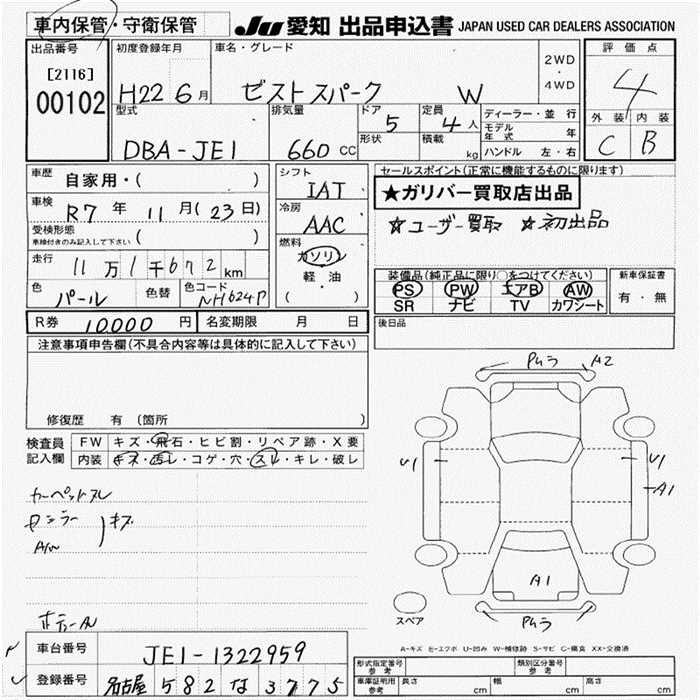 車内保管・守衛保管
JU 愛知 出品申込書 JAPAN USED CAR DEALERS ASSOCIATION
出品番号
[2116]
00102
初度登録年月
H22 6月
車名・グレード
ゼスト スパーク W
2WD
・
4WD
評価点
4
外装 内装
C B
型式
DBA-JE1
排気量
660 CC
ドア
5
定員
4人
形状
積載
kg
ディーラー・並行
モデル年式 年
ハンドル 左・右
車歴
自家用・( )
車検
R7年 11月(23日)
受検形態
車検付きのみ記入して下さい ( )
走行
11万1千672km
色
パール
色替
色コード
NH624P
シフト
IAT
冷房
AAC
燃料
ガソリン
軽・油
( )
セールスポイント(正常に機能するものに限ります)
★ガリバー買取店出品
☆ユーザー買取 ☆初出品
装備品(純正品に限り○をつけてください)
PS PW エアB AW
SR ナビ TV カワシート
新車保証書
有・無
R券 10,000円
名変期限 月 日
後日品
注意事項申告欄(不具合内容等は具体的に記入して下さい)
修復歴 有 (箇所 )
検査員記入欄
FW キズ・飛石・ヒビ割・リペア跡・X要
内装 キズ・汚レ・コゲ・穴・スレ・キレ・破レ
カーペットスレ
キズ
A/W
PMラ A2
U1 U1
A1
A1
PMラ
スペア
A-キズ E-エクボ U-凹み W-補修跡 S-サビ C-腐食 XX-交換済
車台番号 JE1-1322959
登録番号 名古屋 582 な 3775
形式指定番号 参考
類別区分番号 参考
車庫証明用 参考
長さ cm 幅 cm 高さ cm